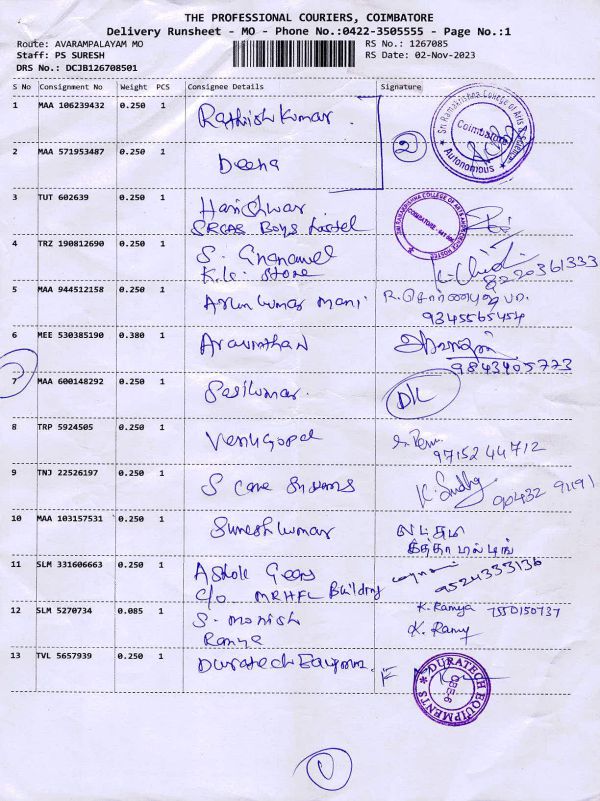 THE PROFESSIONAL COURIERS, COIMBATORE
Delivery Runsheet - MO - Phone No.:0422-3505555 - Page No.:1
Route: AVARAMPALAYAM MO
RS No.: 1267085
Staff: PS SURESH
RS Date: 02-Nov-2023
DRS No.: DCJB126708501
S No Consignment No Weight PCS Consignee Details Signature
1 MAA 106239432 0.250 1 Rathish Kumar.
Sri Ramakrishna College of Arts & Science
Coimbatore
* Autonomous *
2
2 MAA 571953487 0.250 1 Deena
3 TUT 602639 0.250 1 Harishwar
SRCAS Boys Hostel
4 TRZ 190812690 0.250 1 S. Gnanavel
K.G. Store
8220361333
5 MAA 944512158 0.250 1 Arun kumar mani
9345565454
6 MEE 530385190 0.380 1 Aravinthan
9843405773
7 MAA 600148292 0.250 1 Sasikumar.
8 TRP 5924505 0.250 1 Venugopal
9715244712
9 TNJ 22526197 0.250 1 S Cane
K. Sudha 90432 91191
10 MAA 103157531 0.250 1 Sureshkumar
11 SLM 331606663 0.250 1 Ashok Gears
C/o MRHFL Building
9524333136
12 SLM 5270734 0.085 1 S. monish
Ramya
K. Ramya 7550150737
K. Ramy
13 TVL 5657939 0.250 1 Duratech
* DURATECH * EQUIPMENTS